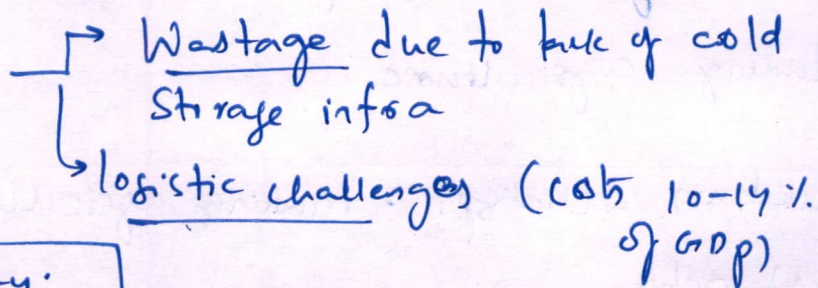 Wastage due to lack of cold
Storage infra
logistic challenges (costs 10-14%
of GDP)